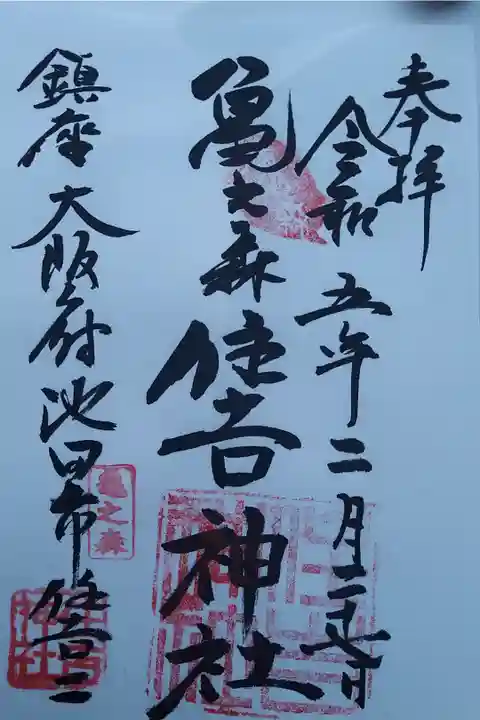 奉拝
令和五年二月
亀之森住吉神社
鎮座大阪府池田市住吉二
亀之森